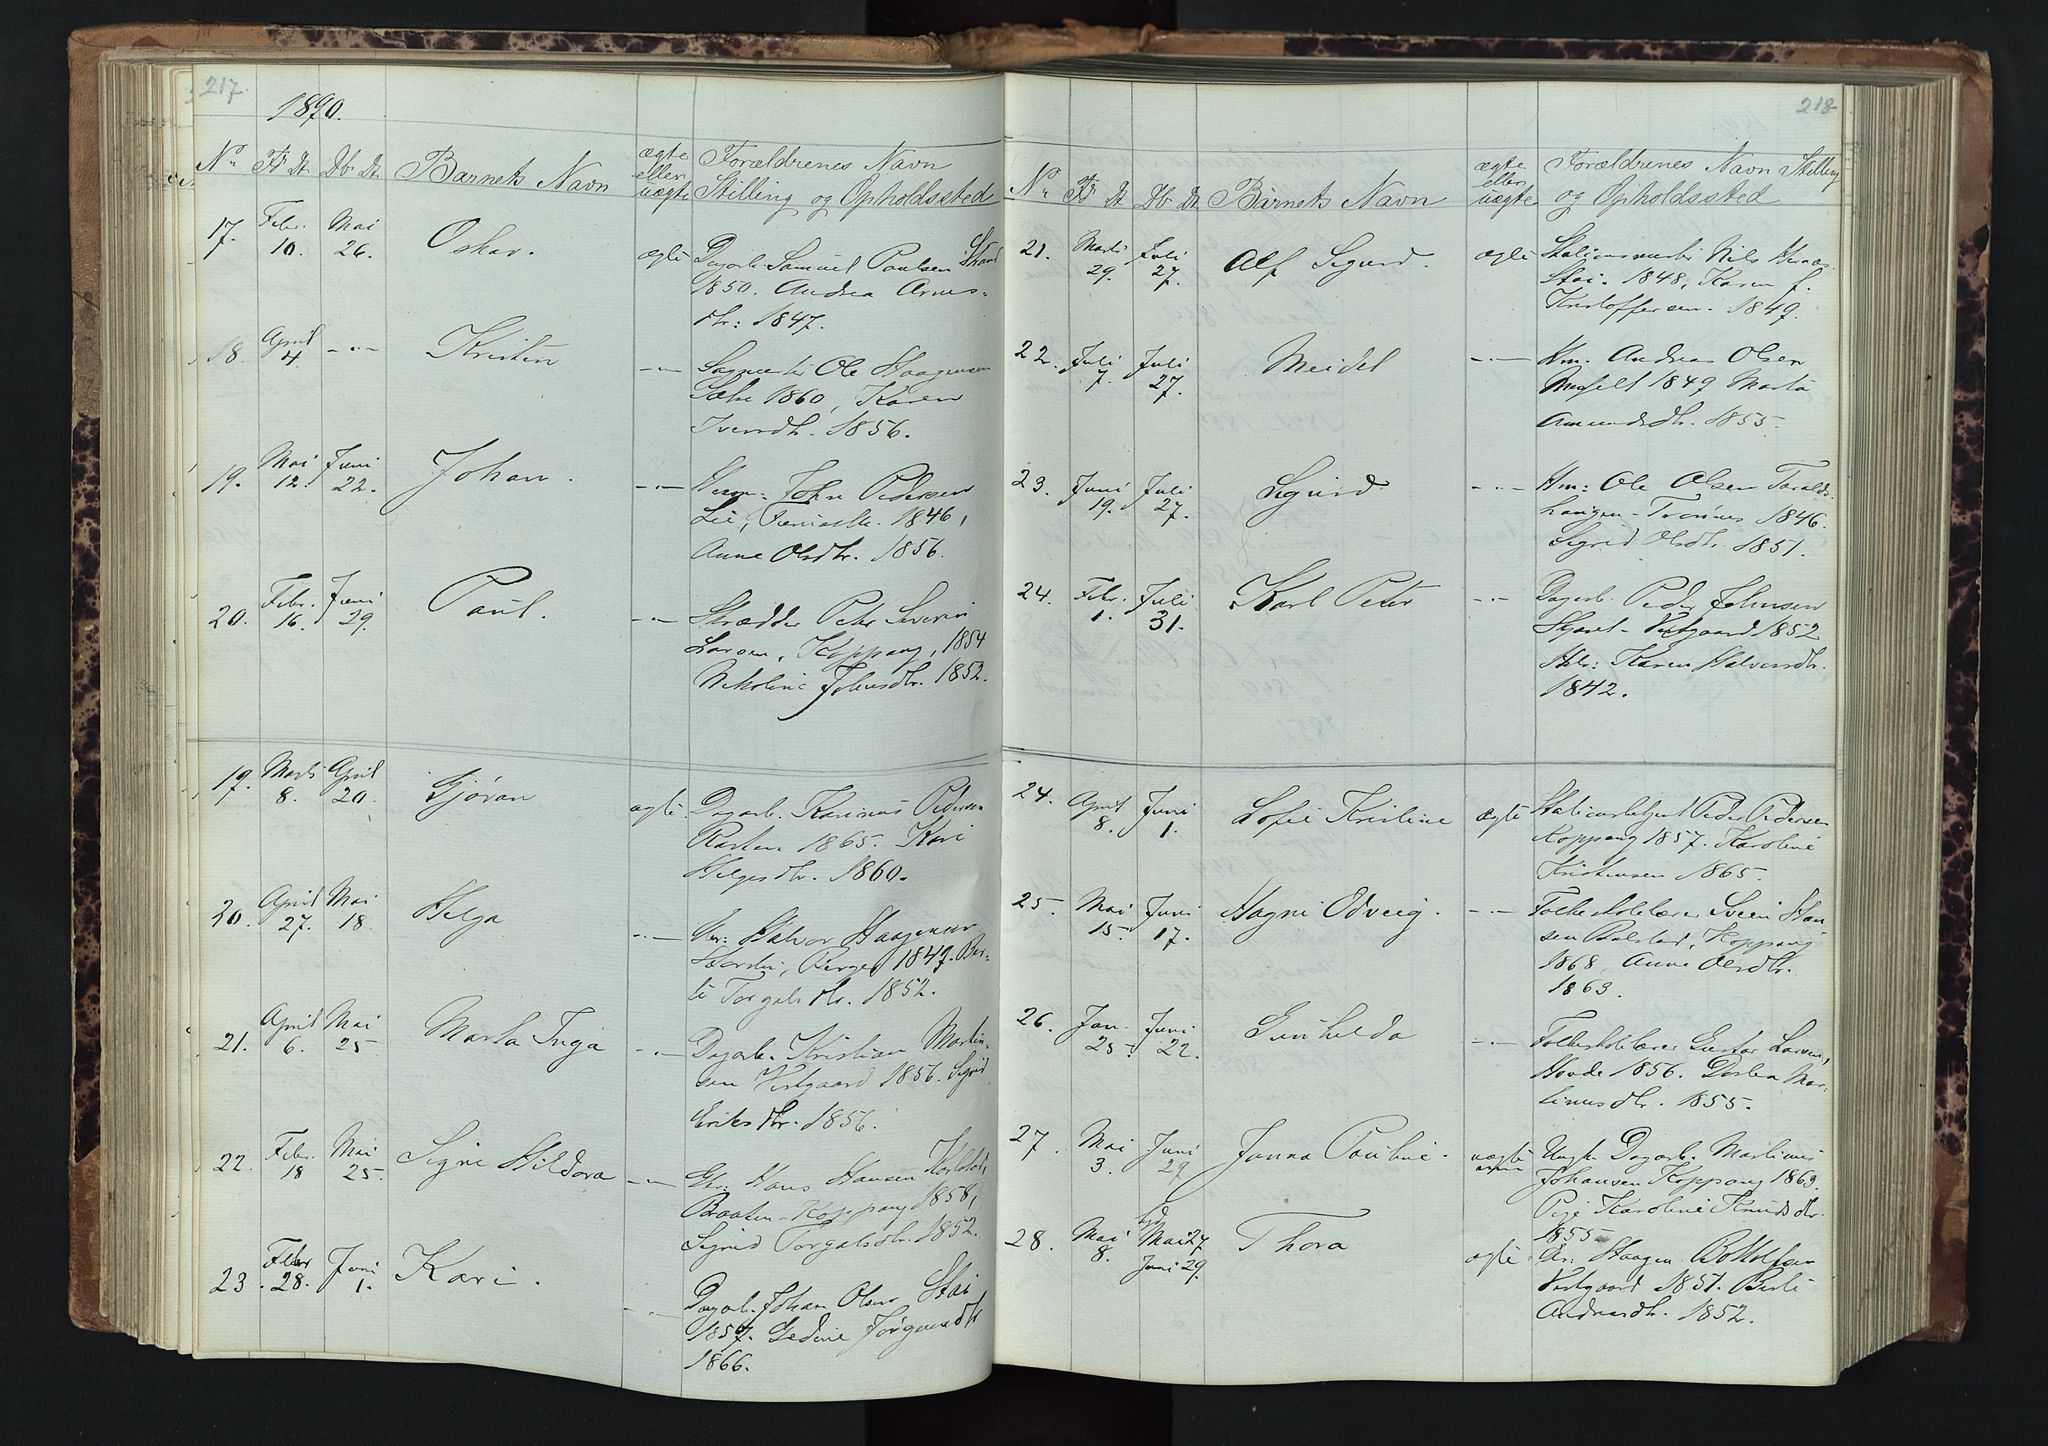 217.
1890.
No Fd Dt. Db. Dt. Barnets Navn ægte eller uægte Forældrenes Navn
Stilling og Opholdssted
17. Febr. 10. Mai 26. Oskar. ægte Dagarb. Samuel Paulsen Strand
1850. Andrea Arnes-
dtr: 1847.
18. April 4. -"- Kristen -"- Ole Haagensen
1860, Karen
Iversdtr. 1856.
19. Mai 12. Juni 22. Johan. -"- John Pedersen
Lie, 1846,
Anne Olsdtr. 1856.
20. Febr. 16. Juni 29. Paul. -"- Skrædder Peter Severin
Larsen, Koppang, 1854
Nikoline Johnsdtr. 1852.
19. Marts 8. April 20. Gjøran ægte. Dagarb. Karinus Pedersen
1865. Kari
Helgesdtr. 1860.
20. April 27. Mai 18. Helga -"- Gr: Halvor Haagensen
Berger 1847. Ber-
te Torgalsdtr. 1852.
21. April 6. Mai 25. Marta Inga -"- Dagarb. Kristian Martin-
sen Vestgaard 1856. Sigrid
Eriksdtr. 1856.
22. Febr. 18 Mai 25. Signe Hildora -"- Gr: Hans Hansen
Braaten-Koppang 1858,
Sigrid Torgalsdtr. 1852.
23. Febr. 28. Juni 1. Kari. -"- Dagarb. Johan Olsen Stai
1857. Gedine Jørgensdtr
1866.
218
No Fd Dt Db. Dt. Barnets Navn ægte eller uægte Forældrenes Navn Stilling
og Opholdssted
21. Marts 29. Juli 27. Alf Sigurd. ægte Stationsmester Nils
Stai. 1848, Karen f.
Kristoffersen. 1849.
22. Juli 7. Juli 27. Meidel -"- Hm. Andreas Olsen
1849 Marte
Amundsdtr. 1855.
23. Juni 19. Juli 27. Sigurd -"- Hm: Ole Olsen
Trønnes 1846.
Sigrid Olsdtr. 1851.
24. Febr. 1. Juli 31. Karl Peter -"- Dagarb. Peder Johnsen
Vestgaard 1852
Karen Halvorsdtr.
1842.
24. April 8. Juni 1. Sofie Kristine ægte Peder Pedersen
Koppang 1857. Karoline
Kristensen 1865.
25. Mai 15. Juni 17. Hagni Edveig. -"- Folkeskolelærer Svein Han-
sen Bolstad, Koppang
1868. Anne Olsdtr.
1863.
26. Jan. 25. Juni 22. Gunhilda -"- Folkeskolelærer Gustav Larsen,
Hovde 1856. Dortea Mar-
tinusdtr. 1855.
27. Mai 3. Juni 29. Janna Pauline. uægte Ungk. Dagarb. Martinus
Johansen Koppang 1863.
Pige Karoline Knudsdtr.
1855.
28. Mai 8. Hjd Mai 27 Juni 29. Thora ægte. Gr: Haagen Botolfsen
Vestgaard 1851. Berte
Andreasdtr. 1852.